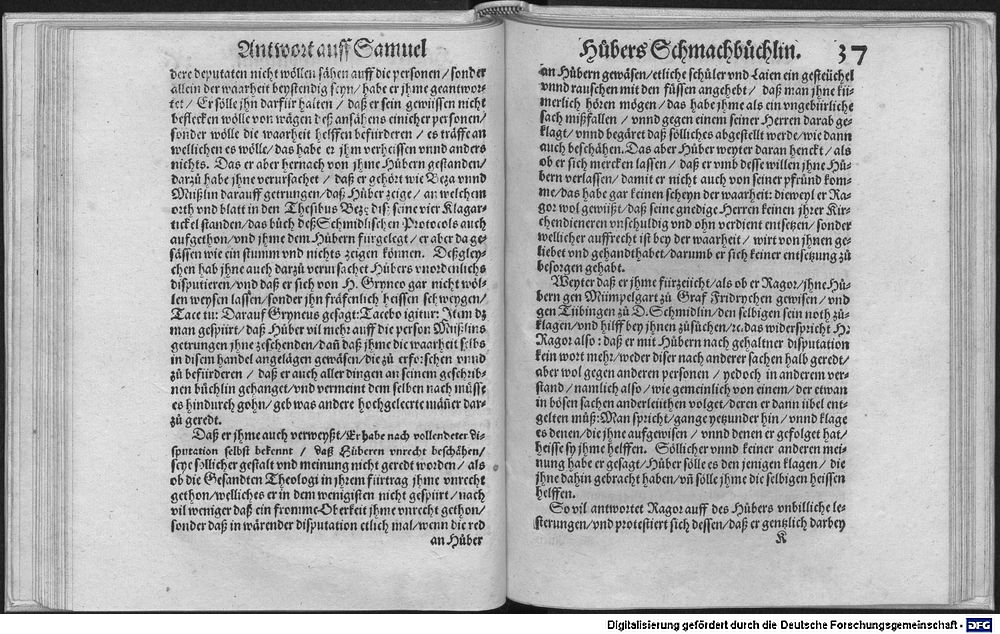 Antwort auff Samuel
dere deputaten nicht wöllen sähen auff die personen / sonder
allein der waarheit beystendig seyn / habe er jhme geantwor-
tet / Er sölle jhn darfür halten / daß er sein gewüssen nicht
beflecken wölle von wägen deß ansähens einicher personen /
sonder wölle die waarheit helffen befürderen / es träffe an
wellichen es wölle / das habe er jhm verheissen vnnd anders
nichts. Das er aber hernach von jhme Hübern gestanden /
darzů habe jhne verursachet / daß er gehört wie Beza vnnd
Müßlin darauff getrungen / daß Hüber zeige / an welchem
orth vnd blatt in den Thesibus Beze diß seine vier Klagar-
tickel standen / das bůch deß Schmidlischen Protocols auch
auffgethon / vnd jhme dem Hübern fürgelegt / er aber da ge-
sässen wie ein stumm vnd nichts zeigen können. Deßgley-
chen hab jhne auch darzů verursachet Hübers vnordenlichs
disputieren / vnd daß er sich von H. Gryneo gar nicht wöl-
len weysen lassen / sonder jhn fräfenlich heissen schweygen /
Tace tu: Darauf Gryneus gesagt: Tacebo igitur: Item dz
man gespürt / daß Hüber vil mehr auff die person Müßlins
getrungen jhne zeschenden / dañ daß jhme die waarheit selbs
in disem handel angelägen gewäsen / die zů erforschen vnnd
zů befürderen / daß er auch aller dingen an seinem geschrib-
nen büchlin gehanget / vnd vermeint dem selben nach müsse
es hindurch gohn / geb was andere hochgeleerte mäñer dar-
zů geredt.
Daß er jhme auch verweyßt / Er habe nach vollendeter di-
sputation selbst bekennt / daß Hüberen vnrecht beschähen /
seye söllicher gestalt vnd meinung nicht geredt worden / als
ob die Gesandten Theologi in jhrem fürtrag jhme vnrecht
gethon / welliches er in dem wenigisten nicht gespürt / nach
vil weniger daß ein fromme Oberkeit jhme vnrecht gethon /
sonder daß in wärender disputation etlich mal / wenn die red
an Hüber
Hübers Schmachbüchlin. 37
an Hübern gewäsen / etliche schůler vnd Laien ein gesteüchel
vnnd rauschen mit den füssen angehebt / daß man jhne kü-
merlich hören mögen / das habe jhme als ein vngebürliche
sach mißfallen / vnnd gegen einem seiner Herren darab ge-
klagt / vnnd begäret daß sölliches abgestellt werde / wie dann
auch beschähen. Das aber Hüber weyter daran henckt / als
ob er sich mercken lassen / daß er vmb desse willen jhne Hü-
bern verlassen / damit er nicht auch von seiner pfrůnd kom-
me / das habe gar keinen scheyn der waarheit: dieweyl er Ra-
gor wol gewüßt / daß seine gnedige Herren keinen jhrer Kir-
chendieneren vnschuldig vnd ohn verdient entsetzen / sonder
wellicher auffrecht ist bey der waarheit / wirt von jhnen ge-
liebet vnd gehandthabet / darumb er sich keiner entsetzung zů
besorgen gehabt.
Weyter daß er jhme fürzeücht / als ob er Ragor / jhne Hü-
bern gen Mümpelgart zů Graf Fridrychen gewisen / vnd
gen Tübingen zů D. Schmidlin / den selbigen sein noth zů-
klagen / vnd hilff bey jhnen zůsůchen / ꝛc. das widerspricht H.
Ragor also: daß er mit Hübern nach gehaltner disputation
kein wort mehr / weder diser nach anderer sachen halb geredt /
aber wol gegen anderen personen / yedoch in anderem ver-
stand / namlich also / wie gemeinlich von einem / der etwan
in bösen sachen anderleüthen volget / deren er dann übel ent-
gelten müß: Man spricht / gange yetzunder hin / vnnd klage
es denen / die jhne aufgewisen / vnnd denen er gefolget hat /
heisse sy jhme helffen. Söllicher vnnd keiner anderen mei-
nung habe er gesagt / Hüber sölle es den jenigen klagen / die
jhne dahin gebracht haben / vñ sölle jhme die selbigen heissen
helffen.
So vil antwortet Ragor auff des Hübers vnbilliche le-
sterungen / vnd protestiert sich dessen / daß er gentzlich darbey
K
Digitalisierung gefördert durch die Deutsche Forschungsgemeinschaft - DFG